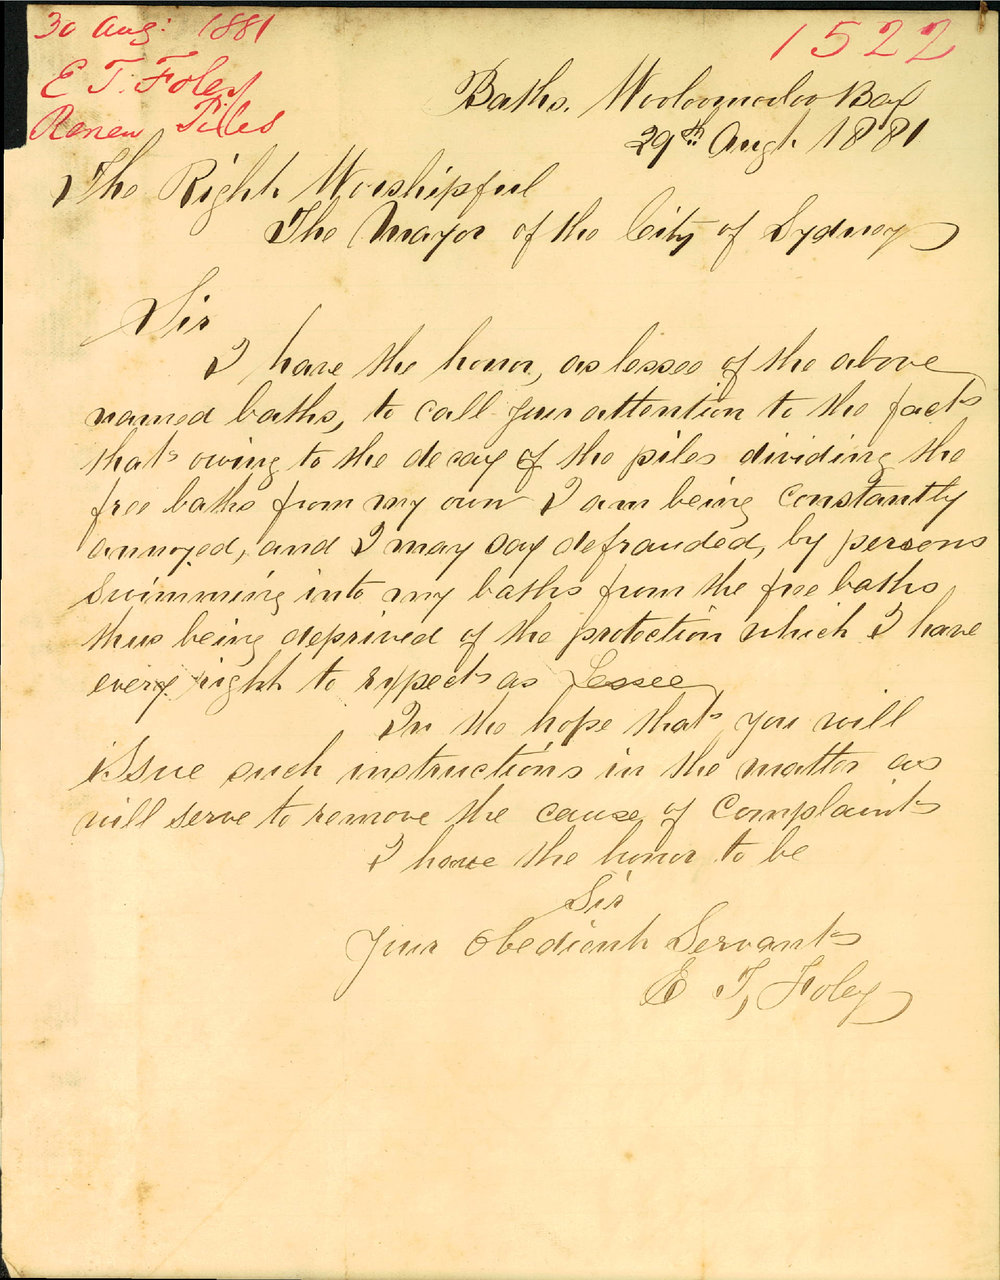 30 Aug: 1881
E T. Foley
Renew Piles
1522
Baths. Wooloomooloo Bay
29th Augt 1881
The Right Worshipful
The Mayor of the City of Sydney
Sir
I have the honor, as lessee of the above
named baths, to call your attention to the fact
that owing to the decay of the piles dividing the
free baths from my own I am being constantly
annoyed, and I may say defrauded, by persons
swimming into my baths from the free baths
thus being deprived of the protection which I have
every right to expect as Lessee
In the hope that you will
issue such instructions in the matter as
will serve to remove the cause of complaint
I have the honor to be
Sir
Your Obedient Servant
E T, Foley